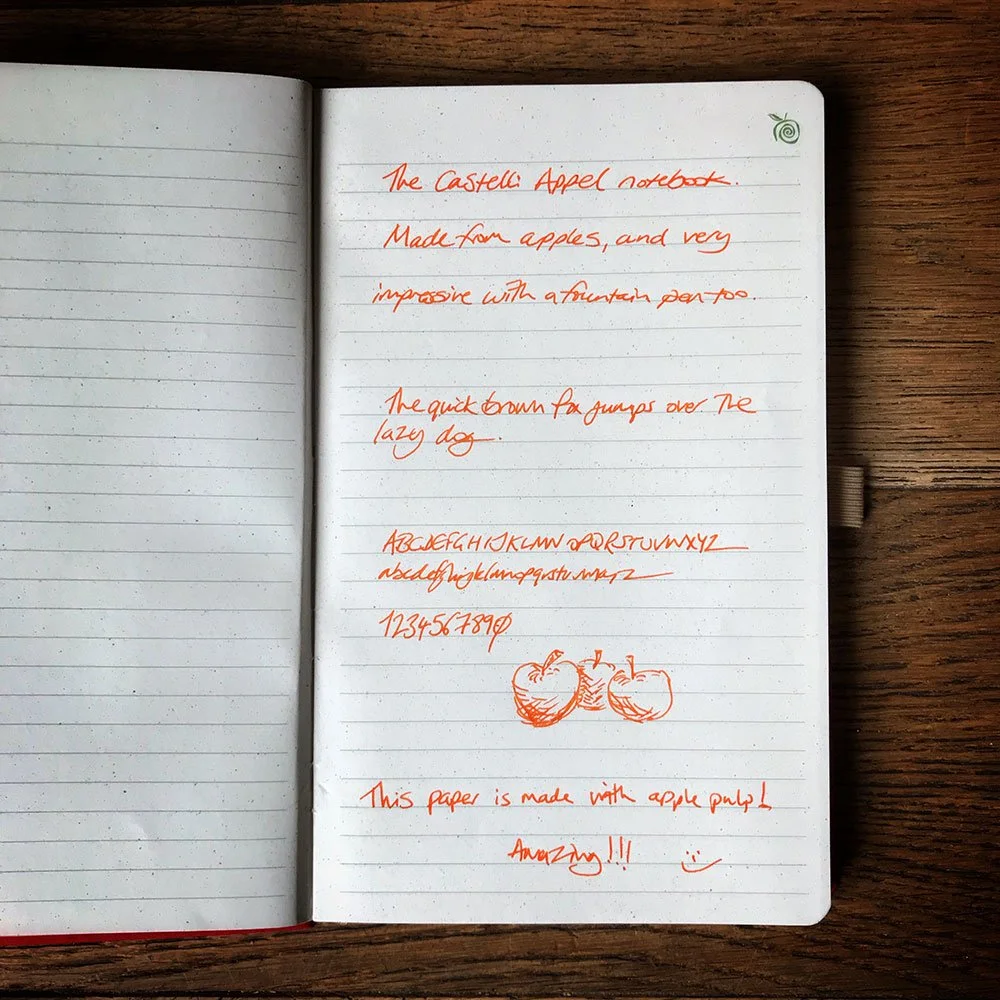 The Castelli Appel notebook.
Made from apples, and very
impressive with a fountain pen too.
The quick brown fox jumps over The
lazy dog.
ABCDEFGHIJKLMNOPQRSTUVWXYZ
abcdefghijklmnopqrstuvwxyz
1234567890
This paper is made with apple pulp!
Amazing!!! :)